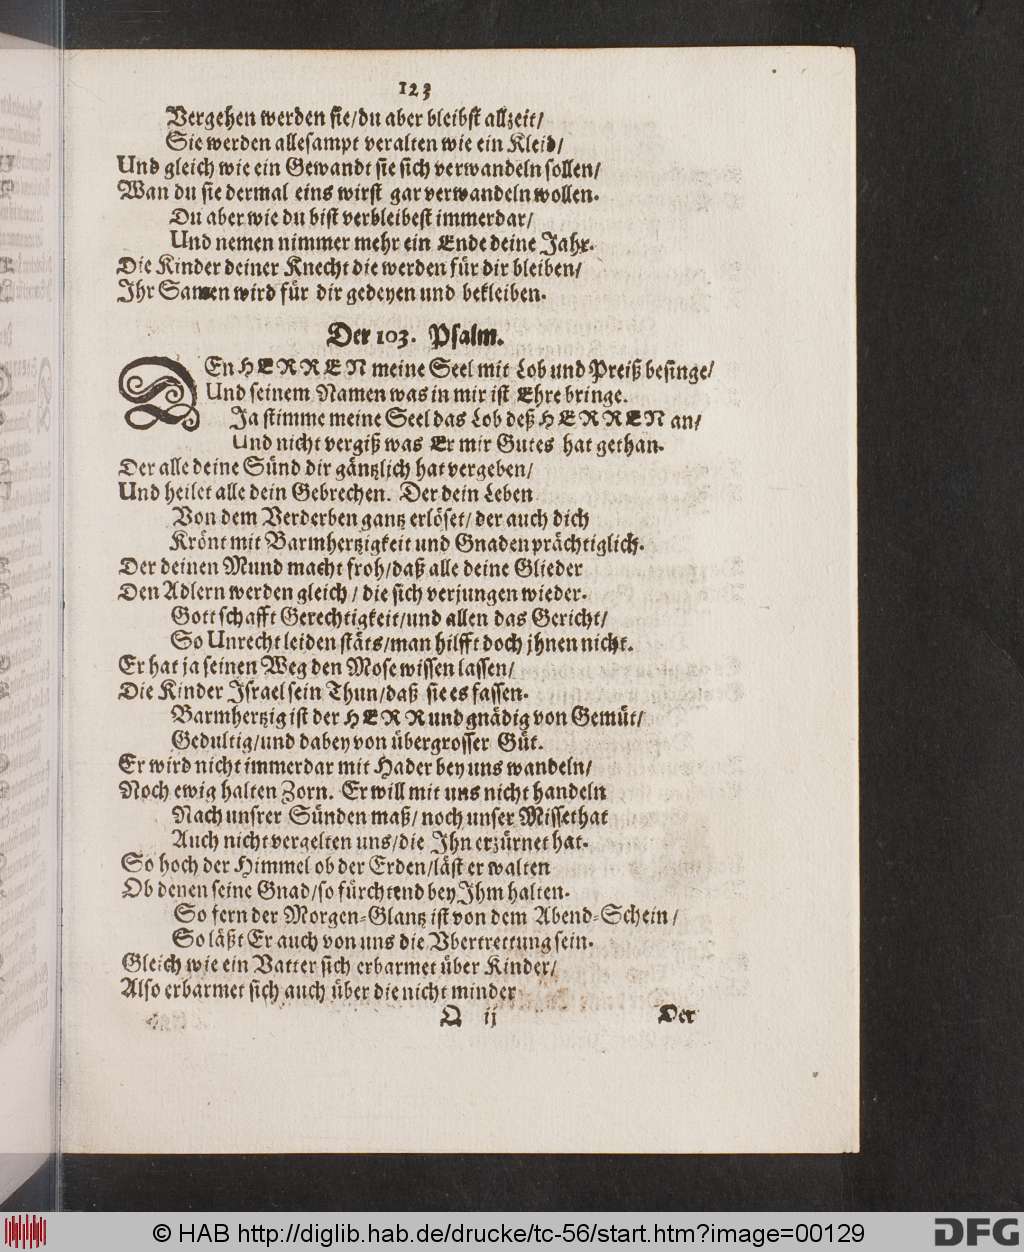 123
Vergehen werden sie/du aber bleibst allzeit/
Sie werden allesampt veralten wie ein Kleid/
Und gleich wie ein Gewandt sie sich verwandeln sollen/
Wan du sie dermal eins wirst gar verwandeln wollen.
Du aber wie du bist verbleibest immerdar/
Und nemen nimmer mehr ein Ende deine Jahr.
Die Kinder deiner Knecht die werden für dir bleiben/
Ihr Samen wird für dir gedeyen und bekleiben.
Der 103. Psalm.
DEn HERREN meine Seel mit Lob und Preiß besinge/
Und seinem Namen was in mir ist Ehre bringe.
Ja stimme meine Seel das Lob deß HERREN an/
Und nicht vergiß was Er mir Gutes hat gethan.
Der alle deine Sünd dir gäntzlich hat vergeben/
Und heilet alle dein Gebrechen. Der dein Leben
Von dem Verderben gantz erlöset/ der auch dich
Krönt mit Barmhertzigkeit und Gnaden prächtiglich.
Der deinen Mund macht froh/daß alle deine Glieder
Den Adlern werden gleich / die sich verjungen wieder.
Gott schafft Gerechtigkeit/und allen das Gericht/
So Unrecht leiden stäts/man hilfft doch jhnen nicht.
Er hat ja seinen Weg den Mose wissen lassen/
Die Kinder Israel sein Thun/daß sie es fassen.
Barmhertzig ist der HERR und gnädig von Gemüt/
Gedultig/und dabey von übergrosser Güt.
Er wird nicht immerdar mit Hader bey uns wandeln/
Noch ewig halten Zorn. Er will mit uns nicht handeln
Nach unsrer Sünden maß/ noch unser Missethat
Auch nicht vergelten uns/die Ihn erzürnet hat.
So hoch der Himmel ob der Erden/läst er walten
Ob denen seine Gnad/so fürchtend bey Ihm halten.
So fern der Morgen-Glantz ist von dem Abend-Schein/
So läßt Er auch von uns die Vbertrettung sein.
Gleich wie ein Vatter sich erbarmet über Kinder/
Also erbarmet sich auch über die nicht minder
Q ij Der
© HAB http://diglib.hab.de/drucke/tc-56/start.htm?image=00129
DFG